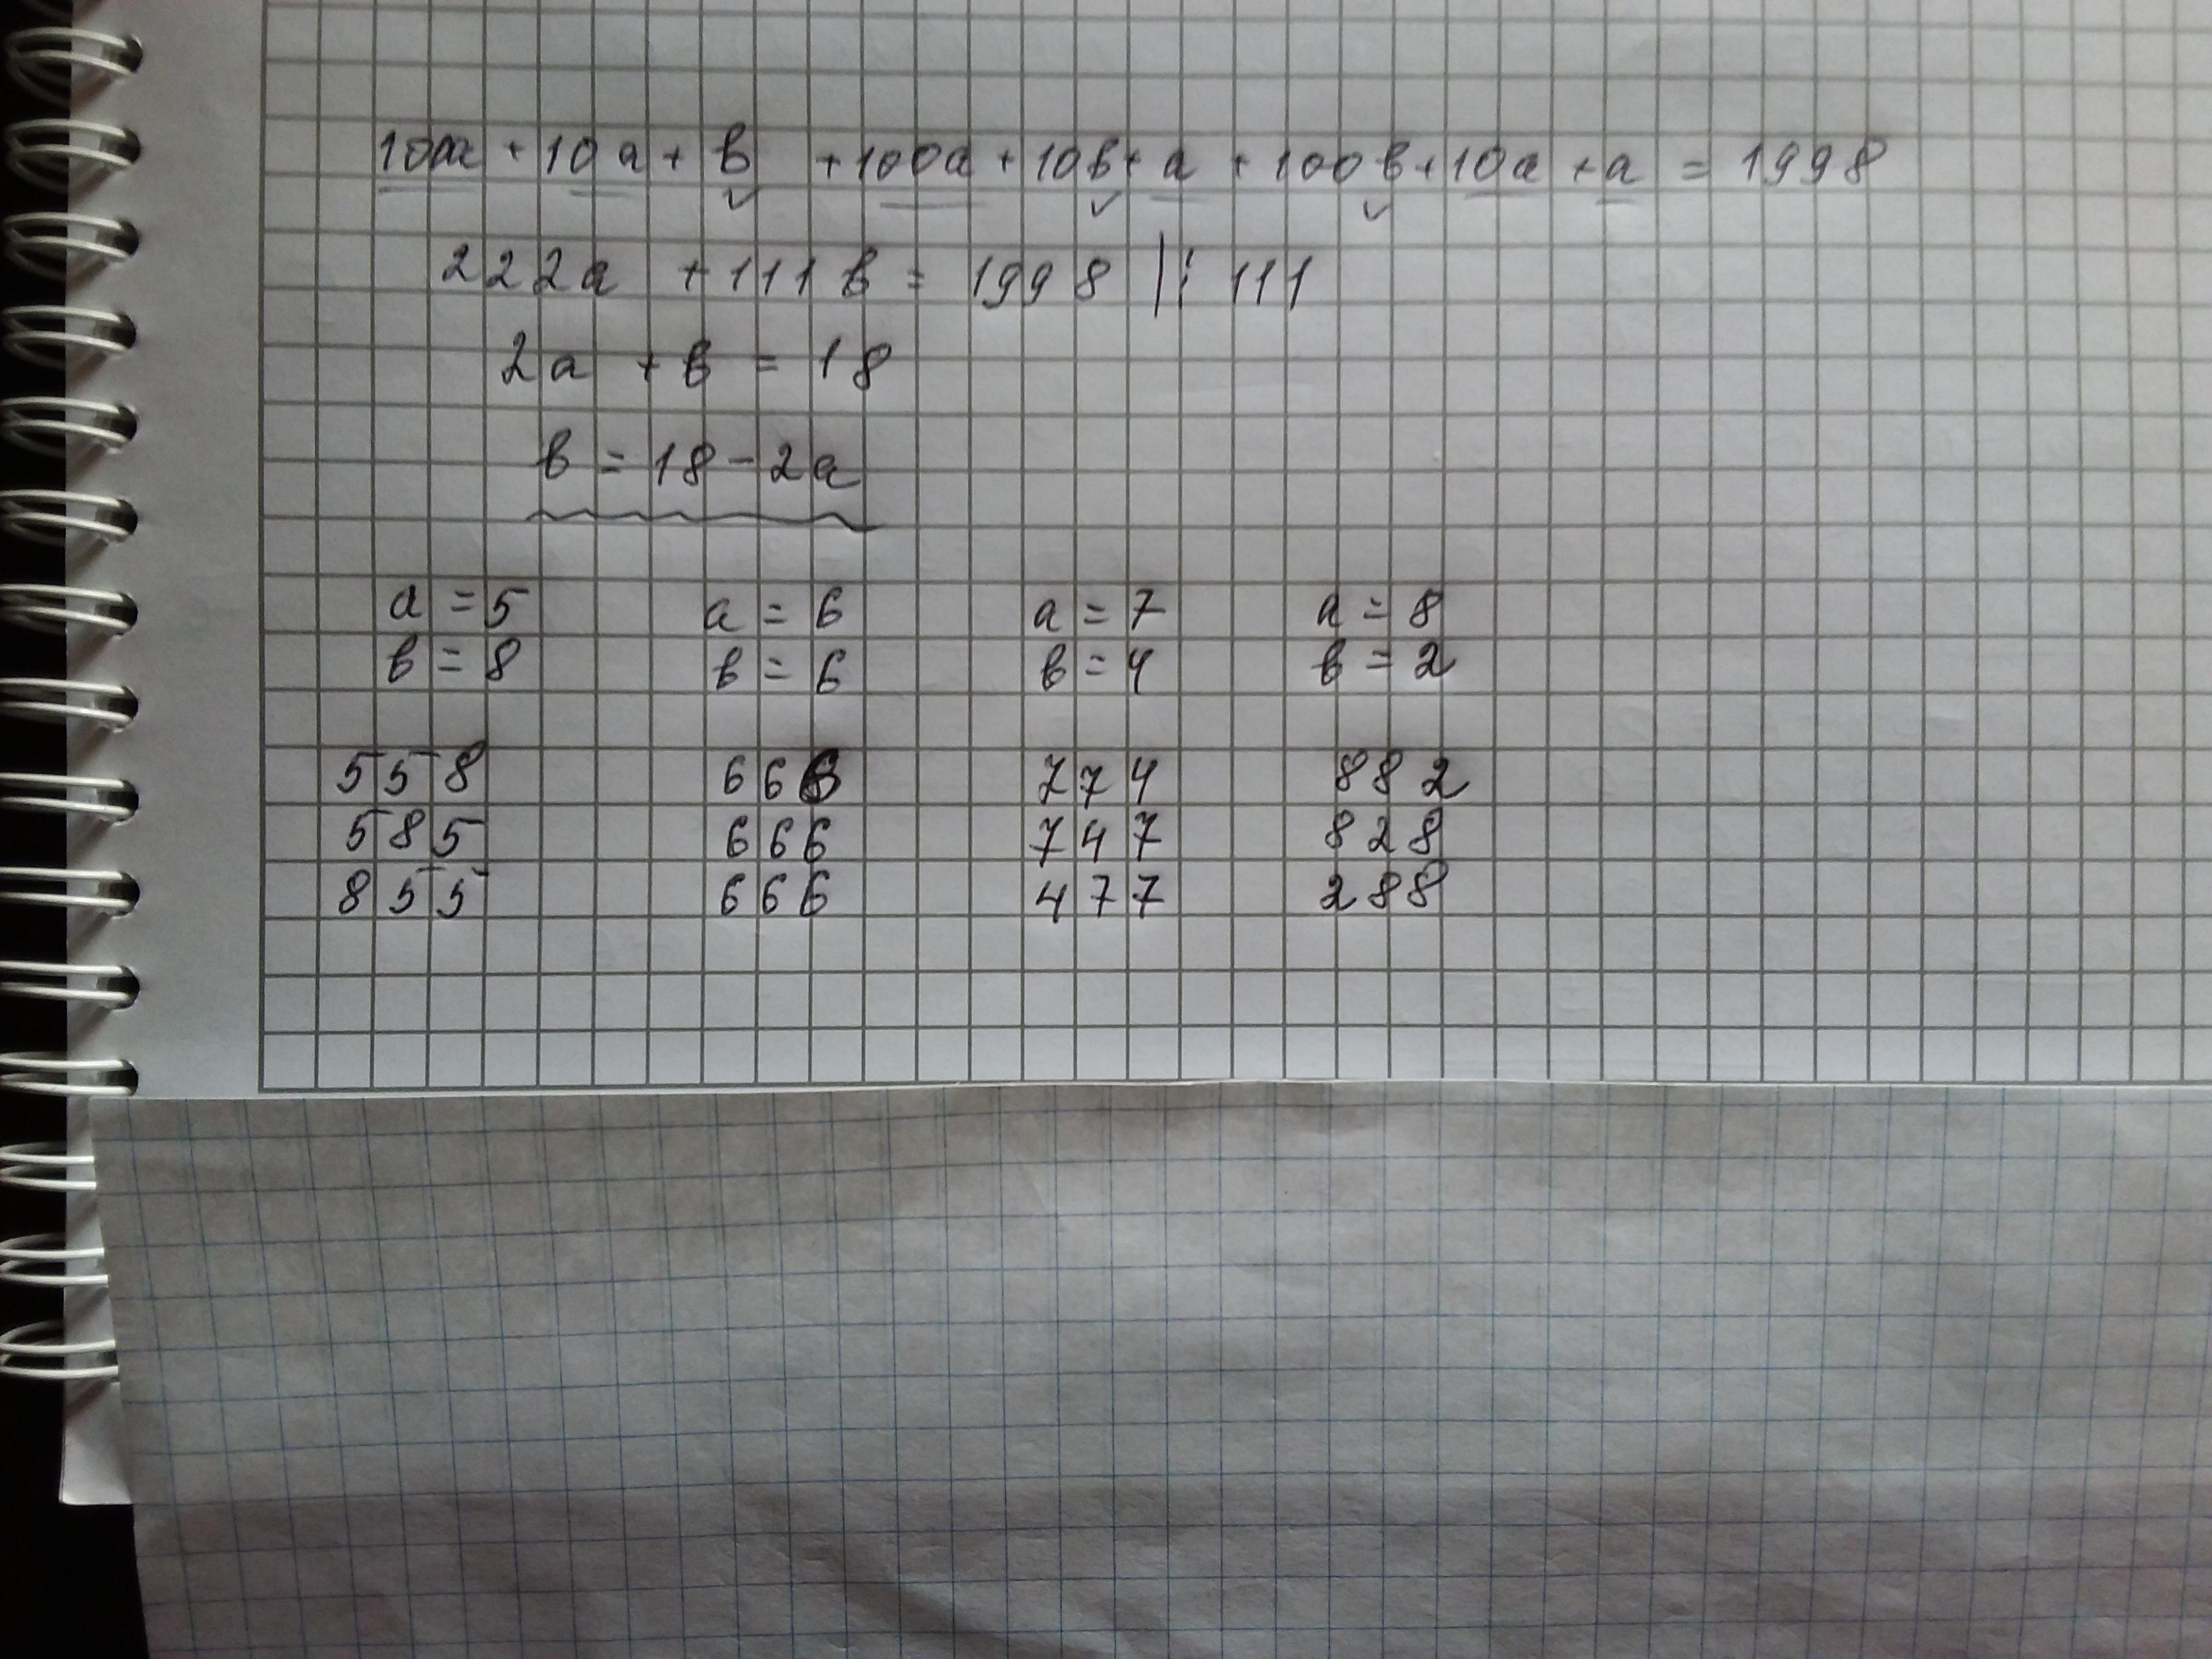 100a + 10a + b + 100a + 10b + a + 100b + 10a + a = 1998
222a + 111b = 1998 | : 111
2a + b = 18
b = 18 - 2a
a = 5 a = 6 a = 7 a = 8
b = 8 b = 6 b = 4 b = 2
558 666 774 882
585 666 747 828
855 666 477 288